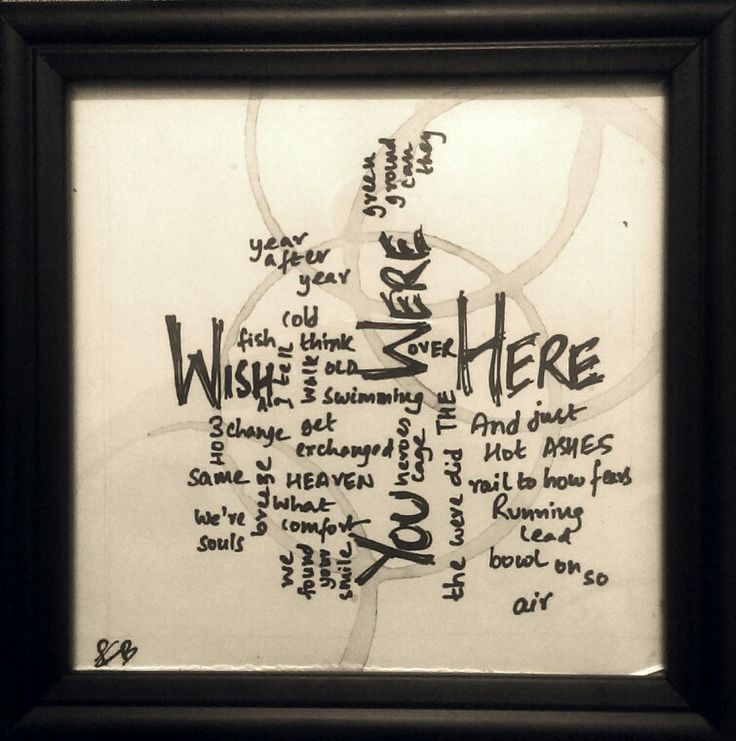 green
ground
can
they
year
after
year
cold
fish think
I tell
walk
OLD
WISH
YOU WERE
OVER
HERE
swimming
A
HOW
change get
exchanged
heroes
cage
same HEAVEN
breeze
what
comfort
We're
souls
we
found
your
smile
THE
the were did
And just
Hot ASHES
rail to how fears
Running
Lead
bowl on so
air